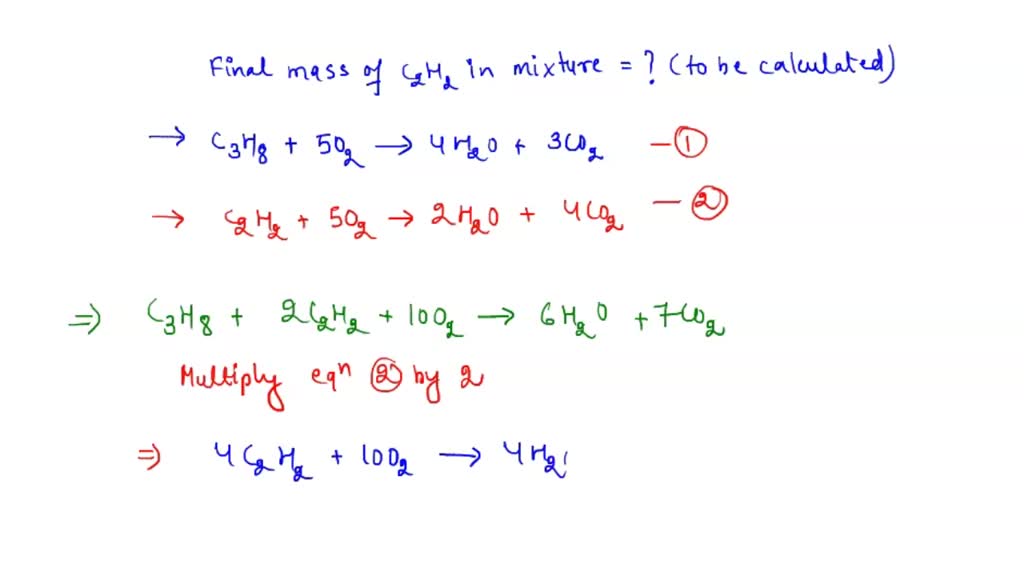 Final mass of C₂H₂ in mixture = ? (to be calculated)
→ C₃H₈ + 5O₂ → 4H₂O + 3CO₂ — ①
→ C₂H₂ + 5O₂ → 2H₂O + 4CO₂ — ②
⇒ C₃H₈ + 2C₂H₂ + 10O₂ → 6H₂O + 7CO₂
Multiply eqⁿ ② by 2
⇒ 4C₂H₂ + 10O₂ → 4H₂(